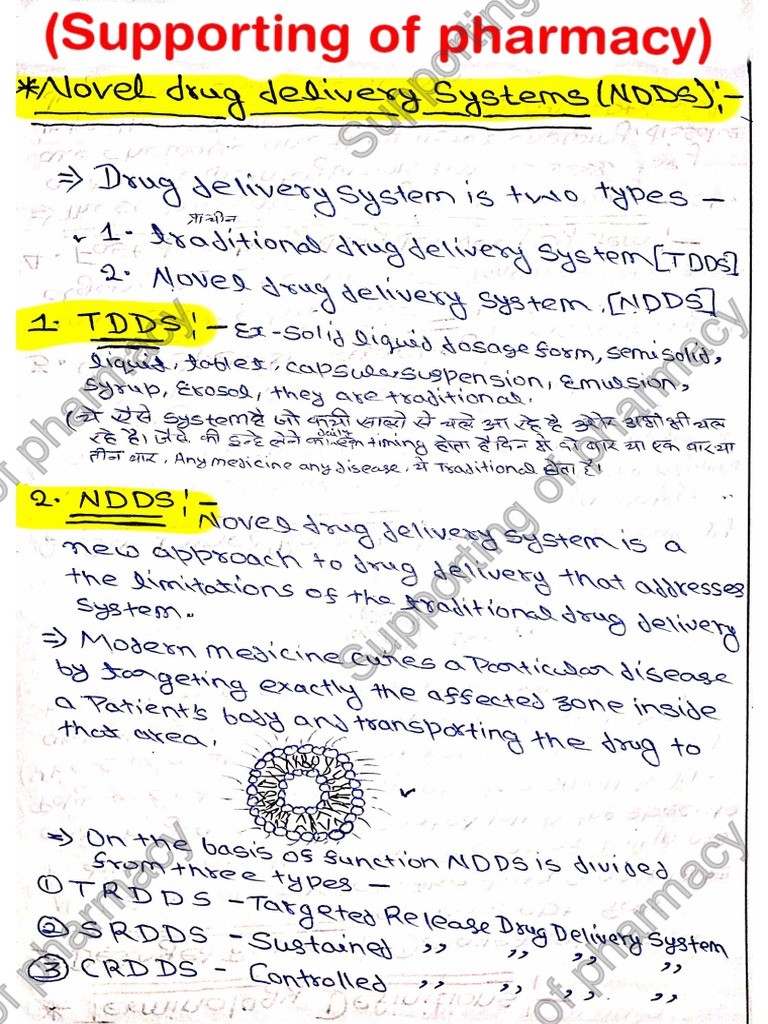 (Supporting of pharmacy)
*Novel drug delivery Systems (NDDS):-
⇒ Drug delivery system is two types -
प्राचीन
1. traditional drug delivery system [TDDS]
2. Novel drug delivery system [NDDS]
1. TDDS:- Ex-Solid liquid dosage form, semisolid,
liquid, tablet, capsule, suspension, Emulsion,
Syrup, Erosol, they are traditional.
(ये ऐसे system है जो काफी सालो से चले आ रहे है और अभी भी चल
रहे है। जैसे की इन्हे लेने का daily timing होता है दिन में दो बार या एक बार या
तीन बार, Any medicine any disease, ये Traditional होता है।
2. NDDS:-
Novel drug delivery system is a
new approach to drug delivery that addresses
the limitations of the traditional drug delivery
system.
⇒ Modern medicine cures a Particular disease
by targeting exactly the affected zone inside
a Patient's body and transporting the drug to
that area.
⇒ On the basis of function NDDS is divided
from three types -
① TRDDS - Targeted Release Drug Delivery System
② SRDDS - Sustained ,, ,, ,, ,,
③ CRDDS - Controlled ,, ,, ,, ,,
Supporting of pharmacy